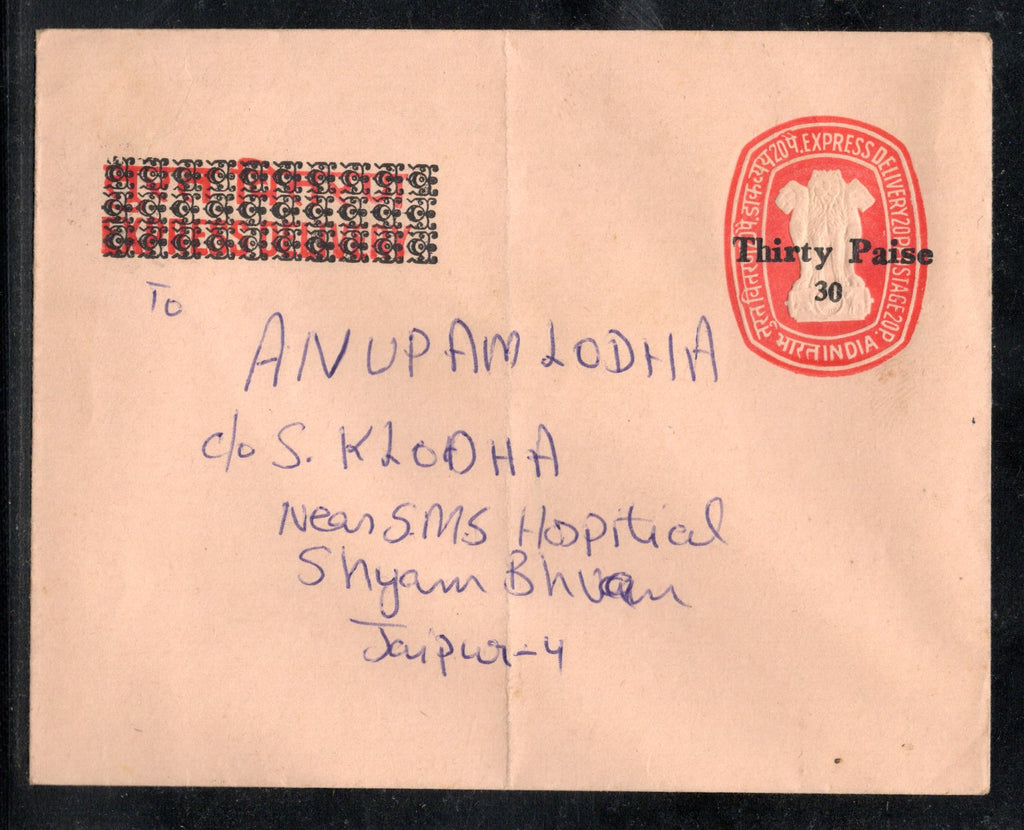 सुरत वितरण 20पै. डाक व्यय 20पै. EXPRESS DELIVERY 20P. POSTAGE 20P.
Thirty Paise
30
भारत INDIA
To
ANUPAM LODHA
c/o S. K LODHA
Near S.M.S Hospitial
Shyam Bhvan
Jaipur-4